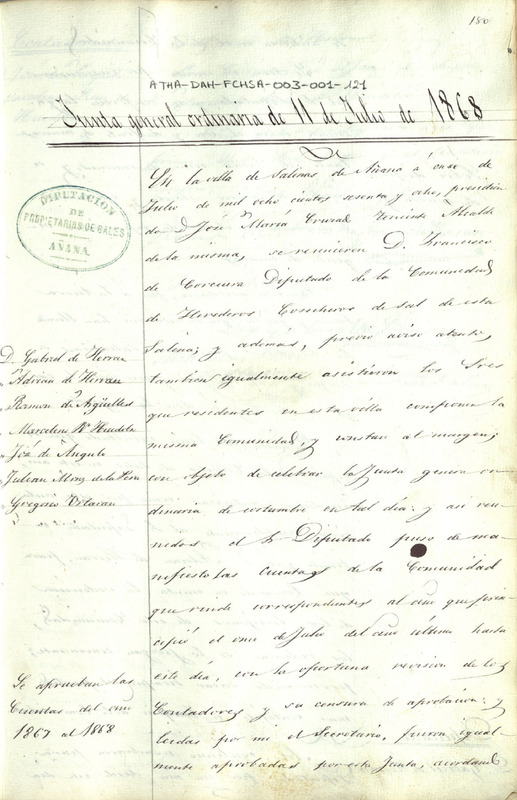 180
ATHA-DAH-FCHSA-003-001-121
Junta general ordinaria de 11 de Julio de 1868
DIPUTACION
DE
PROPIETARIAS DE SALES
AÑANA
En la villa de Salinas de Añana á once de
Julio de mil ocho cientos sesenta y ocho, presidien
do D. José María Teniente Alcalde
de la misma, se reunieron D. Francisco
de Corcuera Diputado de la Comunidad
de Herederos Cosecheros de sal de esta
Salina; y además, previo aviso atento,
tambien igualmente asistieron los Sres
que residentes en esta villa componen la
misma Comunidad, y constan al margen;
con objeto de celebrar la Junta general or
dinaria de costumbre en tal dia: y asi reu-
nidos el Sr Diputado puso de ma-
nifiesto las cuentas de la Comunidad
que rinde correspondientes al año que prin
cipió el once de Julio del año último hasta
este dia, con la oportuna revision de los
Contadores y su censura de aprobacion: y
leidas por mi el Secretario, fueron igual-
mente aprobadas por esta Junta, acordand
D. Gabriel de Herran
" Adrian de Herran
" Ramon de Argüelles
" Marcelino
" José de Angulo
" Julian de la Peña
" Gregorio Ortaran
Se aprueban las
Cuentas del año
1867 al 1868